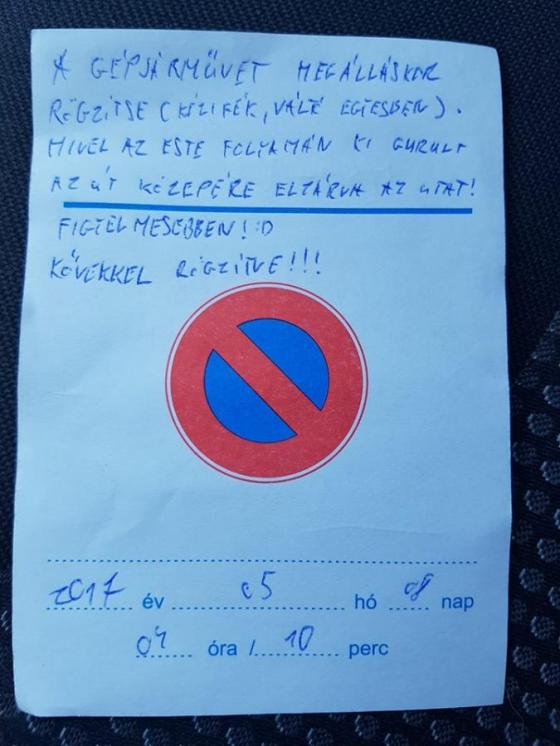 A GÉPJÁRMŰVET MEGÁLLÁSKOR
RÖGZITSE (KÉZIFÉK, VÁLTÓ EGYESBEN).
MIVEL AZ ESTE FOLYAMÁN KI GURULT
AZ ÚT KÖZEPÉRE ELZÁRVA AZ UTAT!
FIGYELMESEBBEN! :D
KÖVEKKEL RÖGZÍTVE!!!
2017 év 05 hó 08 nap
04 óra / 10 perc